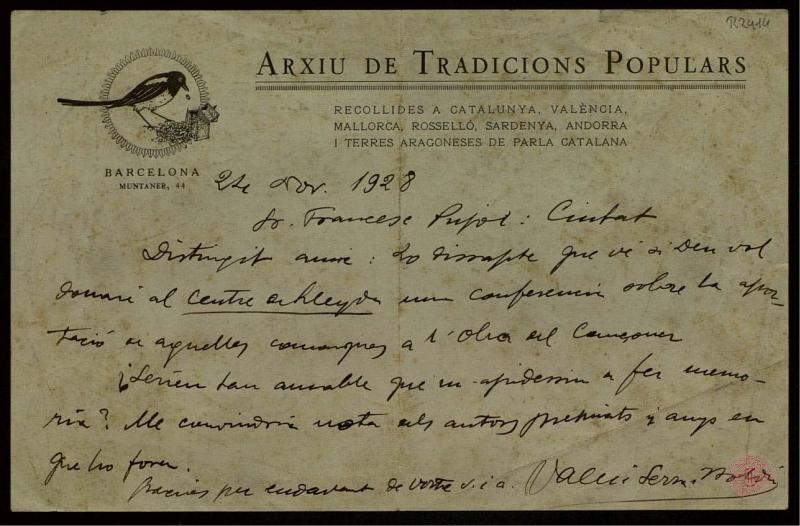 R.2414
ARXIU DE TRADICIONS POPULARS
RECOLLIDES A CATALUNYA, VALÈNCIA,
MALLORCA, ROSSELLÓ, SARDENYA, ANDORRA
I TERRES ARAGONESES DE PARLA CATALANA
BARCELONA
MUNTANER, 44
2 de Nov. 1928
Sr. Francesc Pujol: Ciutat
Distingit amic: Lo dissapte que vé si Deu vol
donaré al Centre de Lleyda una conferencia sobre la apor-
tació de aquelles comarques a l'Obra del Cançoner
¿Serien tan amable que m'ajudessin a fer memo-
ria? Me convindria nota dels autors premiats y anys en
que ho foren.
Gracies per endavant de vostre s. i a. Valeri Serra i Boldú